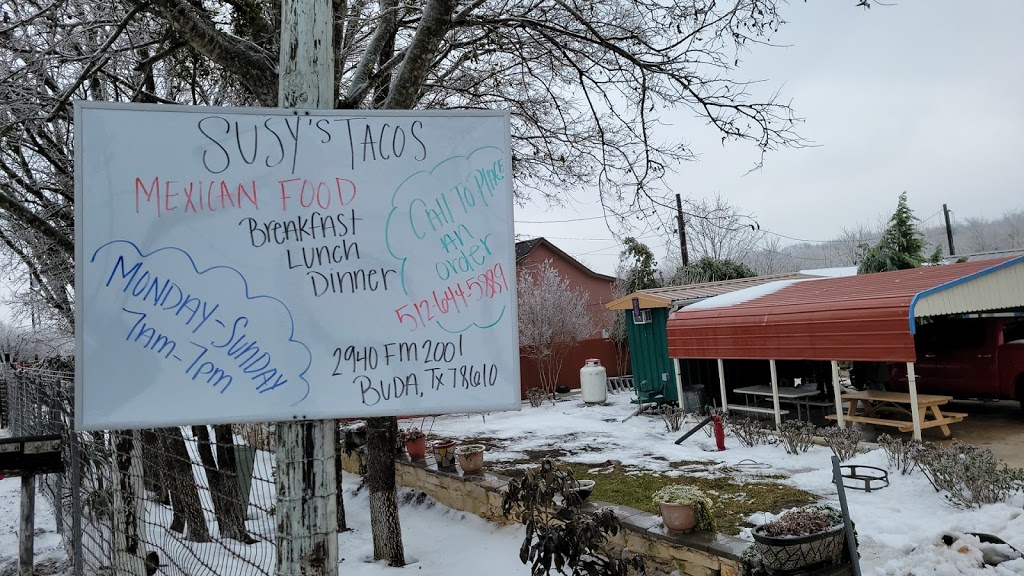 SUSY'S TACOS
MEXICAN FOOD
Breakfast
Lunch
Dinner
CAll To PlAce
AN
order
512-644-5889
MONDAY-SuNDAY
7Am-7pm
2940 FM 2001
BUDA, Tx 78610